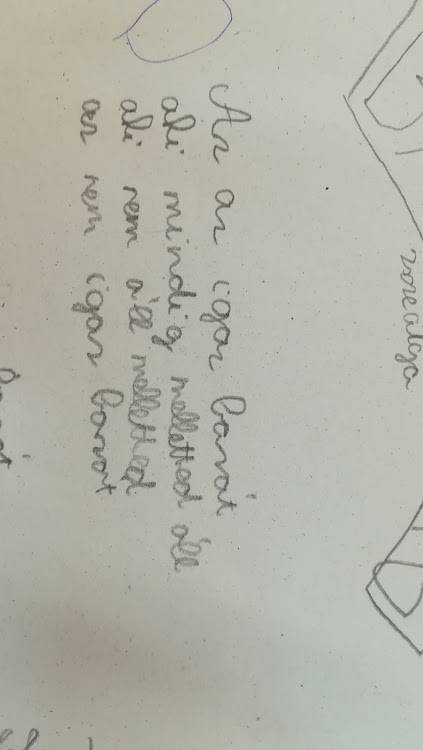 Az az igaz barát
aki mindig melletted áll
aki nem áll melletted
az nem igaz barát